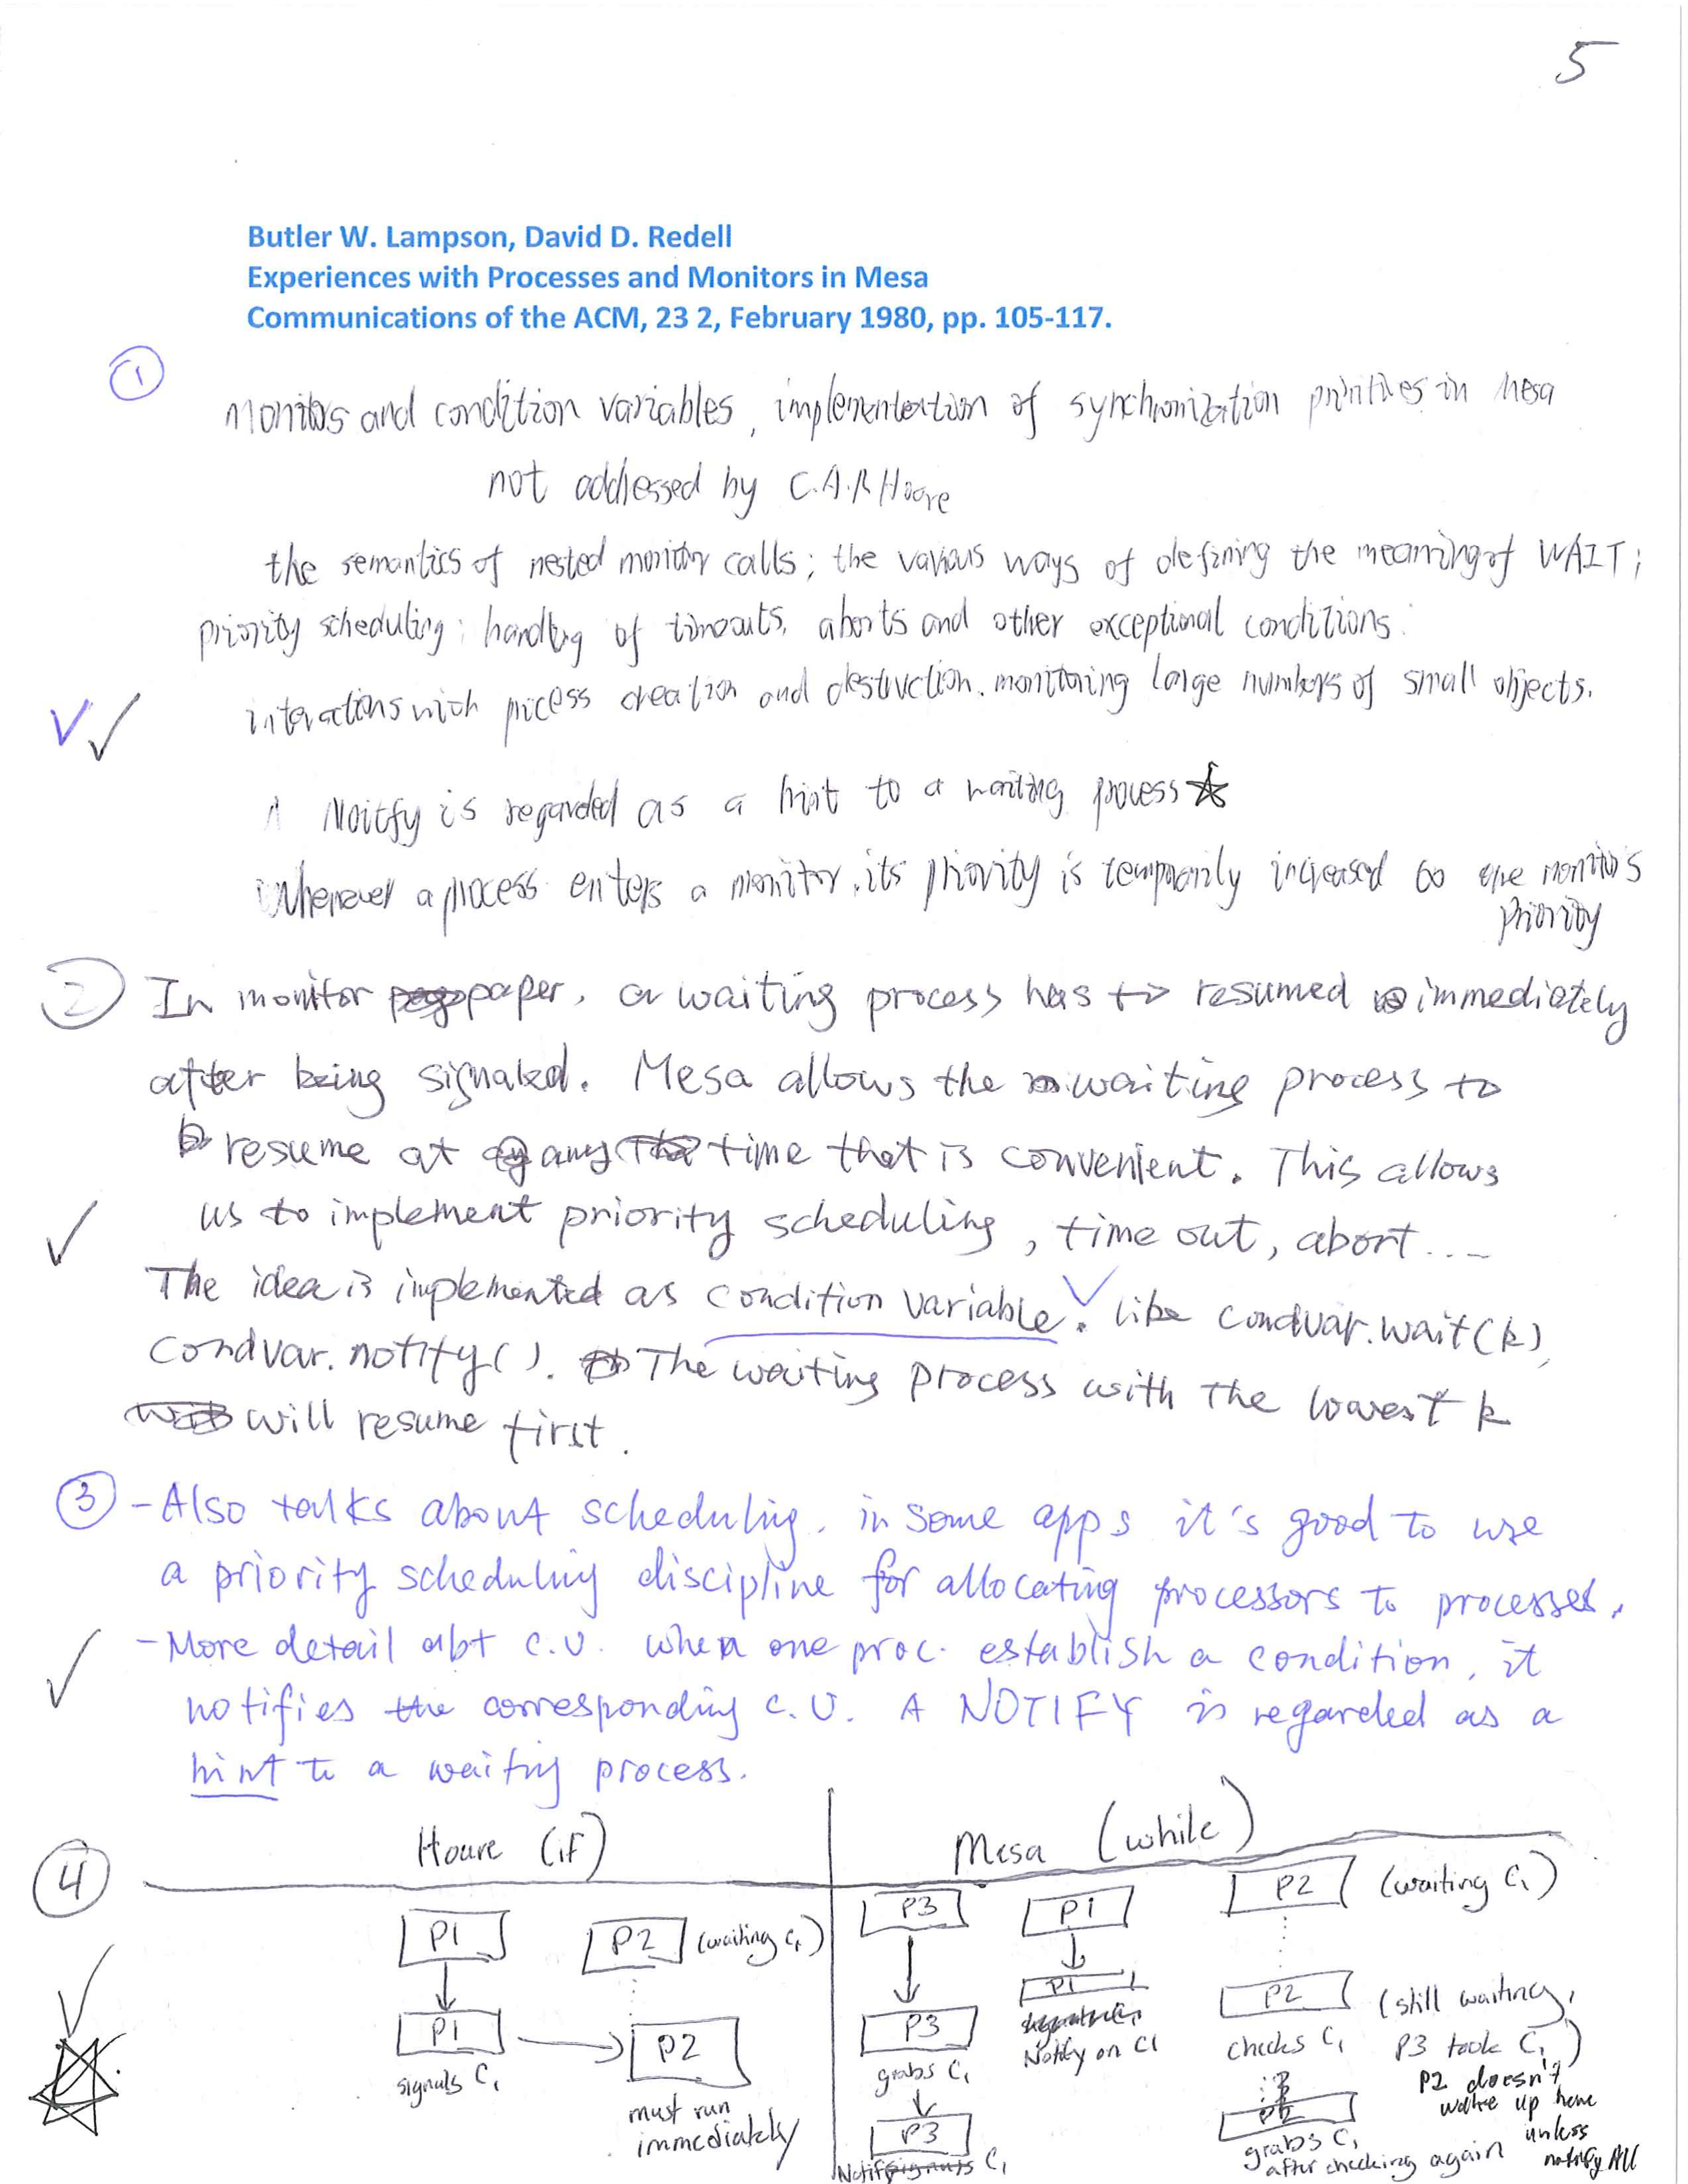 5
Butler W. Lampson, David D. Redell
Experiences with Processes and Monitors in Mesa
Communications of the ACM, 23 2, February 1980, pp. 105-117.
①
monitors and condition variables, implementation of synchronization in Mesa
not addressed by C.A.R Hoare
the semantics of nested monitor calls; the various ways of defining the meaning of WAIT;
priority scheduling; handling of timeouts, aborts and other exceptional conditions.
interactions with process creation and destruction. monitoring large numbers of small objects.
A Noitfy is regarded as a hint to a waiting process ☆
Whenever a process enters a monitor, its priority is temporarily increased to the monitor's
priority
② In monitor paper, a waiting process has to resumed immediately
after being signaled. Mesa allows the waiting process to
resume at any time that is convenient. This allows
us to implement priority scheduling, time out, abort...
The idea is implemented as condition variable. like condvar.wait(k),
condvar.notify(). The waiting process with the lowest k
will resume first.
③ - Also talks about scheduling. in some apps it's good to use
a priority scheduling discipline for allocating processors to processes.
- More detail abt c.v. when one proc. establish a condition, it
notifies the corresponding c.v. A NOTIFY is regarded as a
hint to a waiting process.
④
Houre (if)
P1
P2 (waiting C1)
P1
signals C1
P2
must run
immediately
Mesa (while)
P3
P1
P2 (waiting C1)
P3
grabs C1
P1
Notify on C1
P2
checks C1
(still waiting,
P3 took C1)
P2 doesn't
wake up here
unless
notify All
P3
Notify C1
P2
grabs C1
after checking again